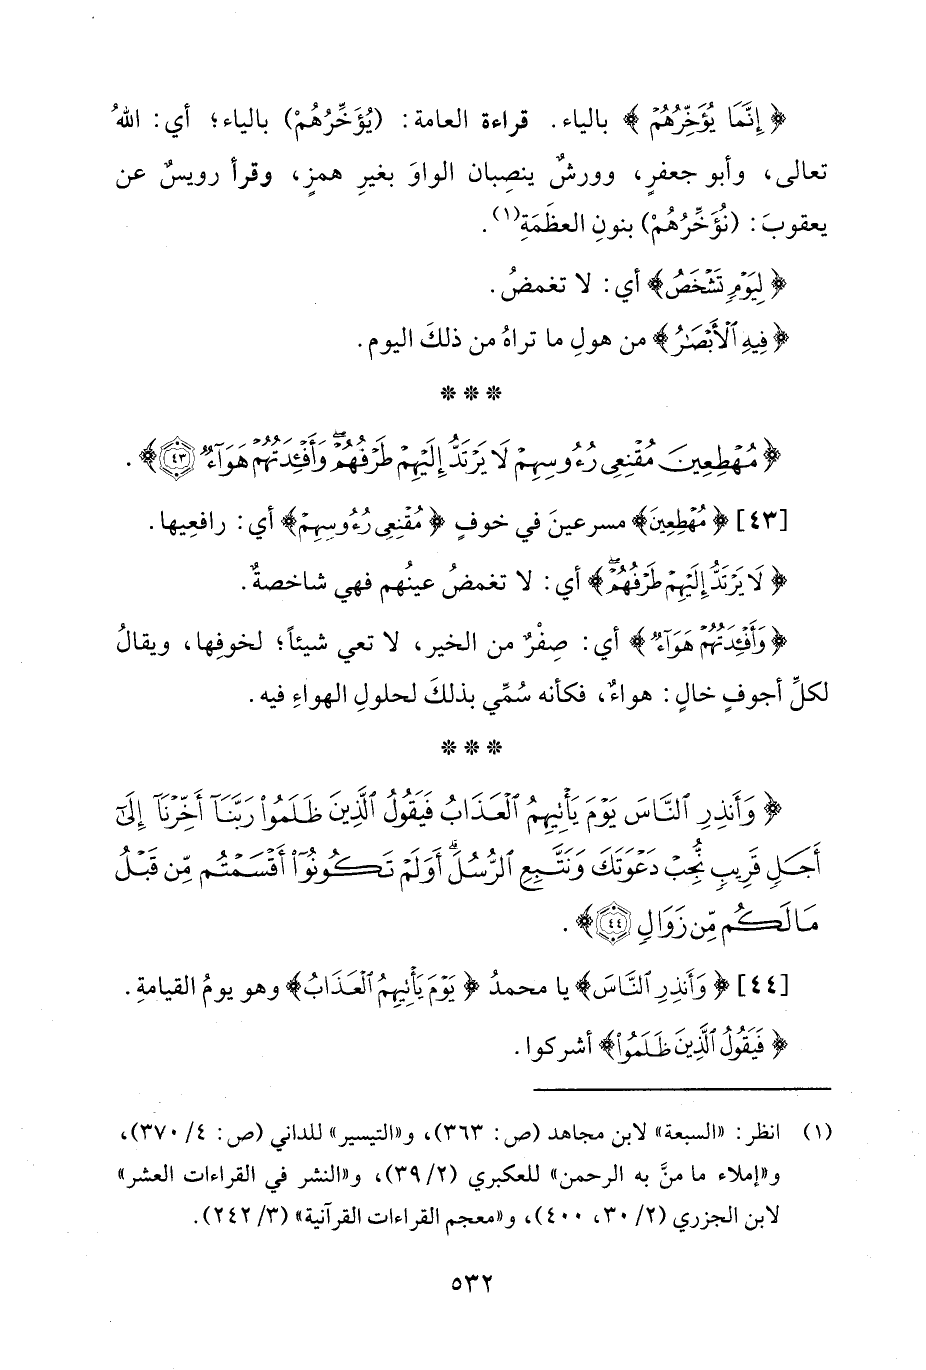 ﴿ إِنَّمَا يُؤَخِّرُهُمْ ﴾ بالياء. قراءة العامة: (يُؤَخِّرُهُمْ) بالياء؛ أي: اللهُ
تعالى، وأبو جعفرٍ، وورشٌ ينصِبان الواوَ بغيرِ همزٍ، وقرأ رويسٌ عن
يعقوبَ: (نُؤَخِّرُهُمْ) بنونِ العظَمَةِ(١).
﴿ لِيَوْمٍ تَشْخَصُ ﴾ أي: لا تغمضُ.
﴿ فِيهِ ٱلْأَبْصَٰرُ ﴾ من هولِ ما تراهُ من ذلكَ اليوم.
* * *
﴿ مُهْطِعِينَ مُقْنِعِى رُءُوسِهِمْ لَا يَرْتَدُّ إِلَيْهِمْ طَرْفُهُمْ ۖ وَأَفْـِٔدَتُهُمْ هَوَآءٌ ٤٣ ﴾.
[٤٣] ﴿ مُهْطِعِينَ ﴾ مسرعينَ في خوفٍ ﴿ مُقْنِعِى رُءُوسِهِمْ ﴾ أي: رافعِيها.
﴿ لَا يَرْتَدُّ إِلَيْهِمْ طَرْفُهُمْ ۖ ﴾ أي: لا تغمضُ عينُهم فهي شاخصةٌ.
﴿ وَأَفْـِٔدَتُهُمْ هَوَآءٌ ﴾ أي: صِفْرٌ من الخير، لا تعي شيئاً؛ لخوفِها، ويقالُ
لكلِّ أجوفٍ خالٍ: هواءٌ، فكأنه سُمِّي بذلكَ لحلولِ الهواءِ فيه.
* * *
﴿ وَأَنذِرِ ٱلنَّاسَ يَوْمَ يَأْتِيهِمُ ٱلْعَذَابُ فَيَقُولُ ٱلَّذِينَ ظَلَمُوا۟ رَبَّنَآ أَخِّرْنَآ إِلَىٰٓ
أَجَلٍ قَرِيبٍ نُّجِبْ دَعْوَتَكَ وَنَتَّبِعِ ٱلرُّسُلَ ۗ أَوَلَمْ تَكُونُوٓا۟ أَقْسَمْتُم مِّن قَبْلُ
مَا لَكُم مِّن زَوَالٍ ٤٤ ﴾.
[٤٤] ﴿ وَأَنذِرِ ٱلنَّاسَ ﴾ يا محمدُ ﴿ يَوْمَ يَأْتِيهِمُ ٱلْعَذَابُ ﴾ وهو يومُ القيامةِ.
﴿ فَيَقُولُ ٱلَّذِينَ ظَلَمُوا۟ ﴾ أشركوا.
(١) انظر: «السبعة» لابن مجاهد (ص: ٣٦٣)، و«التيسير» للداني (ص: ٤/ ٣٧٠)،
و«إملاء ما منَّ به الرحمن» للعكبري (٢/ ٣٩)، و«النشر في القراءات العشر»
لابن الجزري (٢/ ٣٠، ٤٠٠)، و«معجم القراءات القرآنية» (٣/ ٢٤٢).
٥٣٢